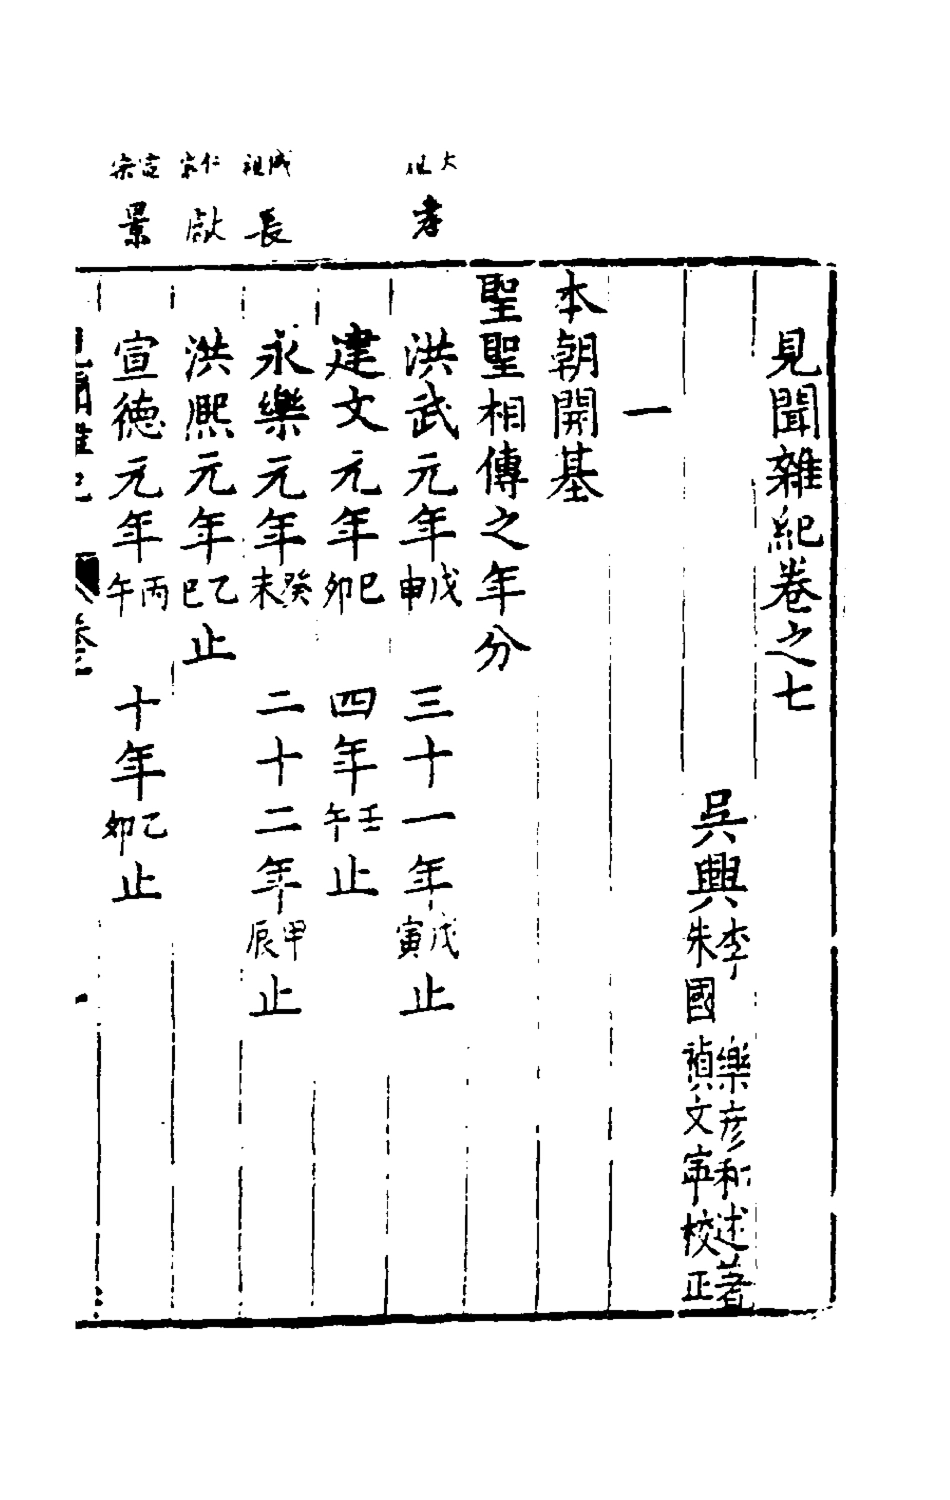 見聞雜紀卷之七
吳興李樂彥和述著
朱國禎文寧校正
一
本朝開基
聖聖相傳之年分
太祖
孝
洪武元年戊申 三十一年戊寅止
建文元年己卯 四年壬午止
成祖
長
永樂元年癸未 二十二年甲辰止
仁宗
獻
洪熙元年乙巳止
宣宗
景
宣德元年丙午 十年乙卯止